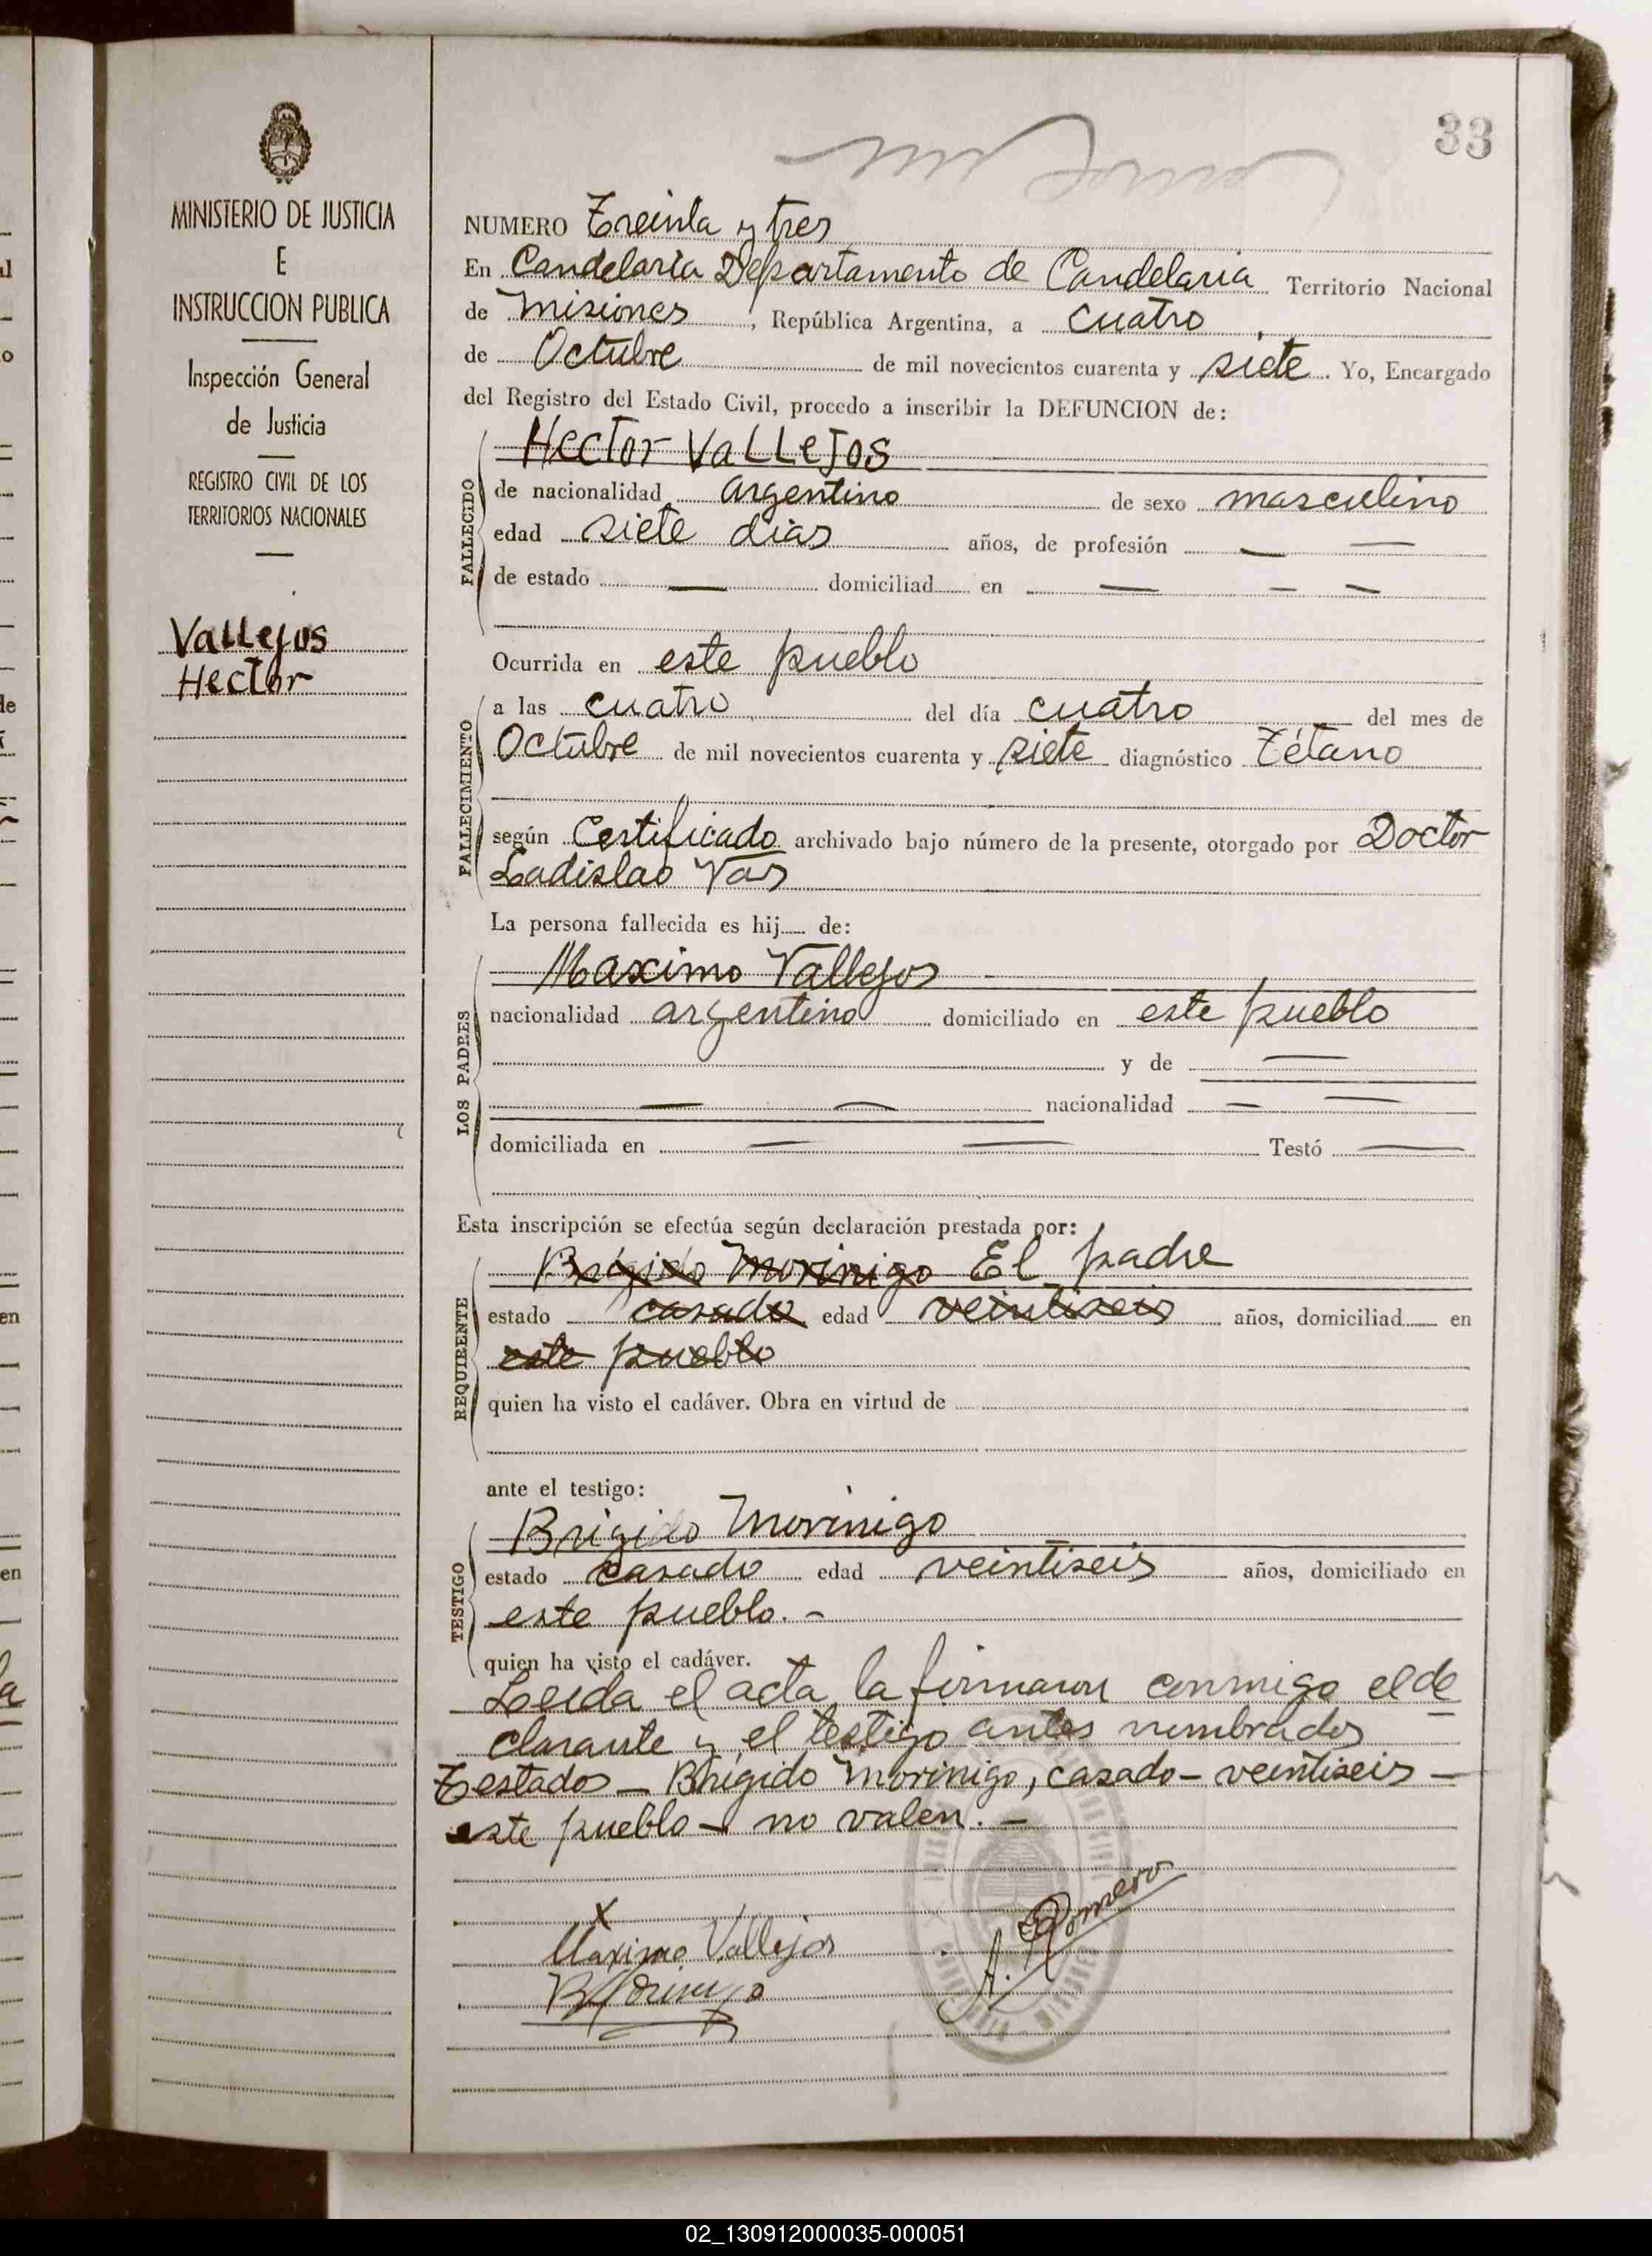 33
MINISTERIO DE JUSTICIA
E
INSTRUCCION PUBLICA
Inspección General
de Justicia
REGISTRO CIVIL DE LOS
TERRITORIOS NACIONALES
Vallejos
Hector
NUMERO Treinta y tres
En Candelaria Departamento de Candelaria Territorio Nacional
de Misiones, República Argentina, a cuatro
de Octubre de mil novecientos cuarenta y siete. Yo, Encargado
del Registro del Estado Civil, procedo a inscribir la DEFUNCION de:
FALLECIDO
Hector Vallejos
de nacionalidad argentino de sexo masculino
edad siete dias años, de profesión —
de estado — domiciliad en — — —
Ocurrida en este pueblo
FALLECIMIENTO
a las cuatro del día cuatro del mes de
Octubre de mil novecientos cuarenta y siete diagnóstico Tétano
según Certificado archivado bajo número de la presente, otorgado por Doctor
Ladislao Vas
La persona fallecida es hij de:
LOS PADRES
Maximo Vallejos
nacionalidad argentino domiciliado en este pueblo
y de —
— — nacionalidad — —
domiciliada en — — Testó —
Esta inscripción se efectúa según declaración prestada por:
REQUIRENTE
Brigido Morinigo El padre
estado casado edad veintiseis años, domiciliad en
este pueblo
quien ha visto el cadáver. Obra en virtud de
ante el testigo:
TESTIGO
Brigido Morinigo
estado casado edad veintiseis años, domiciliado en
este pueblo. —
quien ha visto el cadáver.
Leida el acta, la firmaron conmigo el de
clarante y el testigo antes nombrados
Testados — Brigido Morinigo, casado — veintiseis —
este pueblo — no valen. —
X
Maximo Vallejos
BMorinigo
A. Romero
02_130912000035-000051